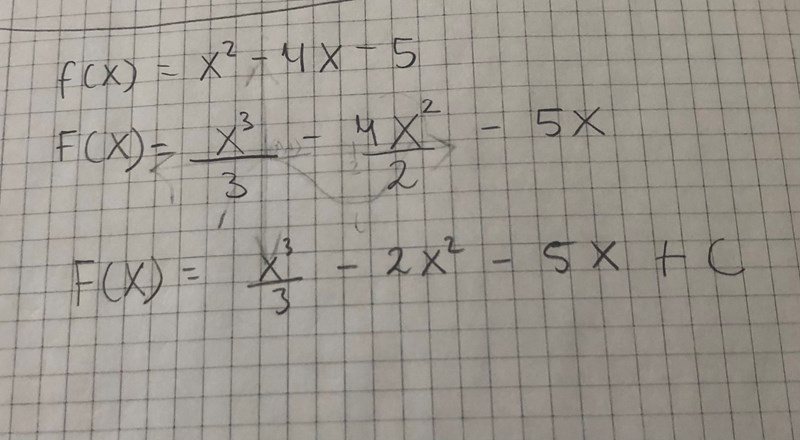 f(x) = x² - 4x - 5
F(x) = x³/3 - 4x²/2 - 5x
F(x) = x³/3 - 2x² - 5x + C